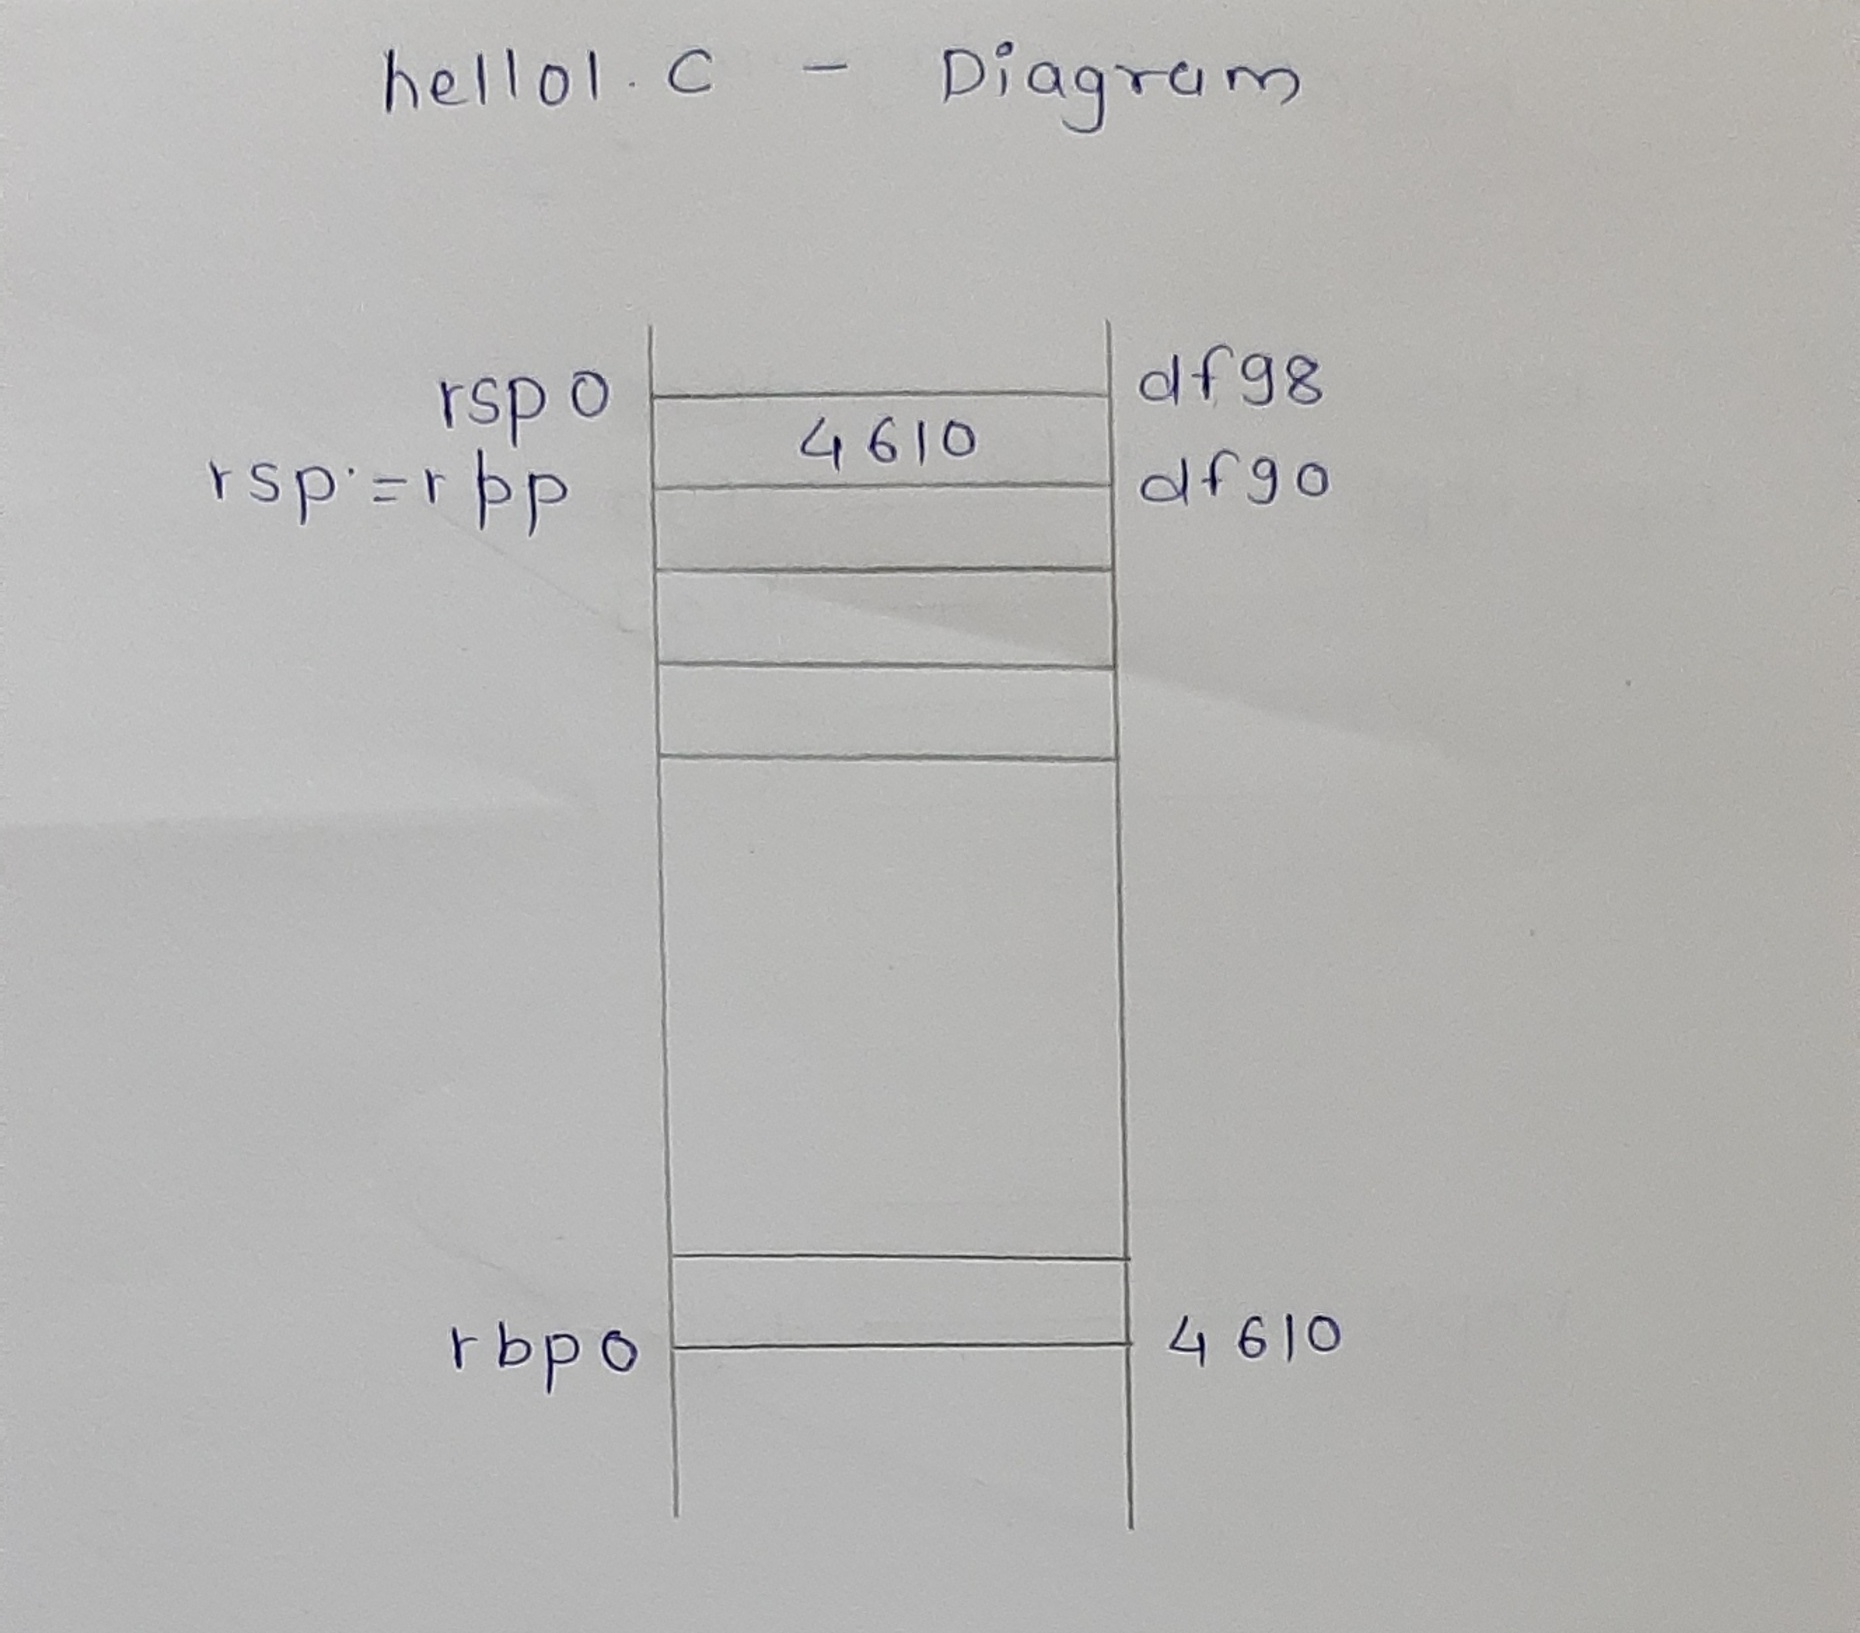 hello1.c - Diagram
rsp0 df98
4610
rsp=rbp df90
rbp0 4610